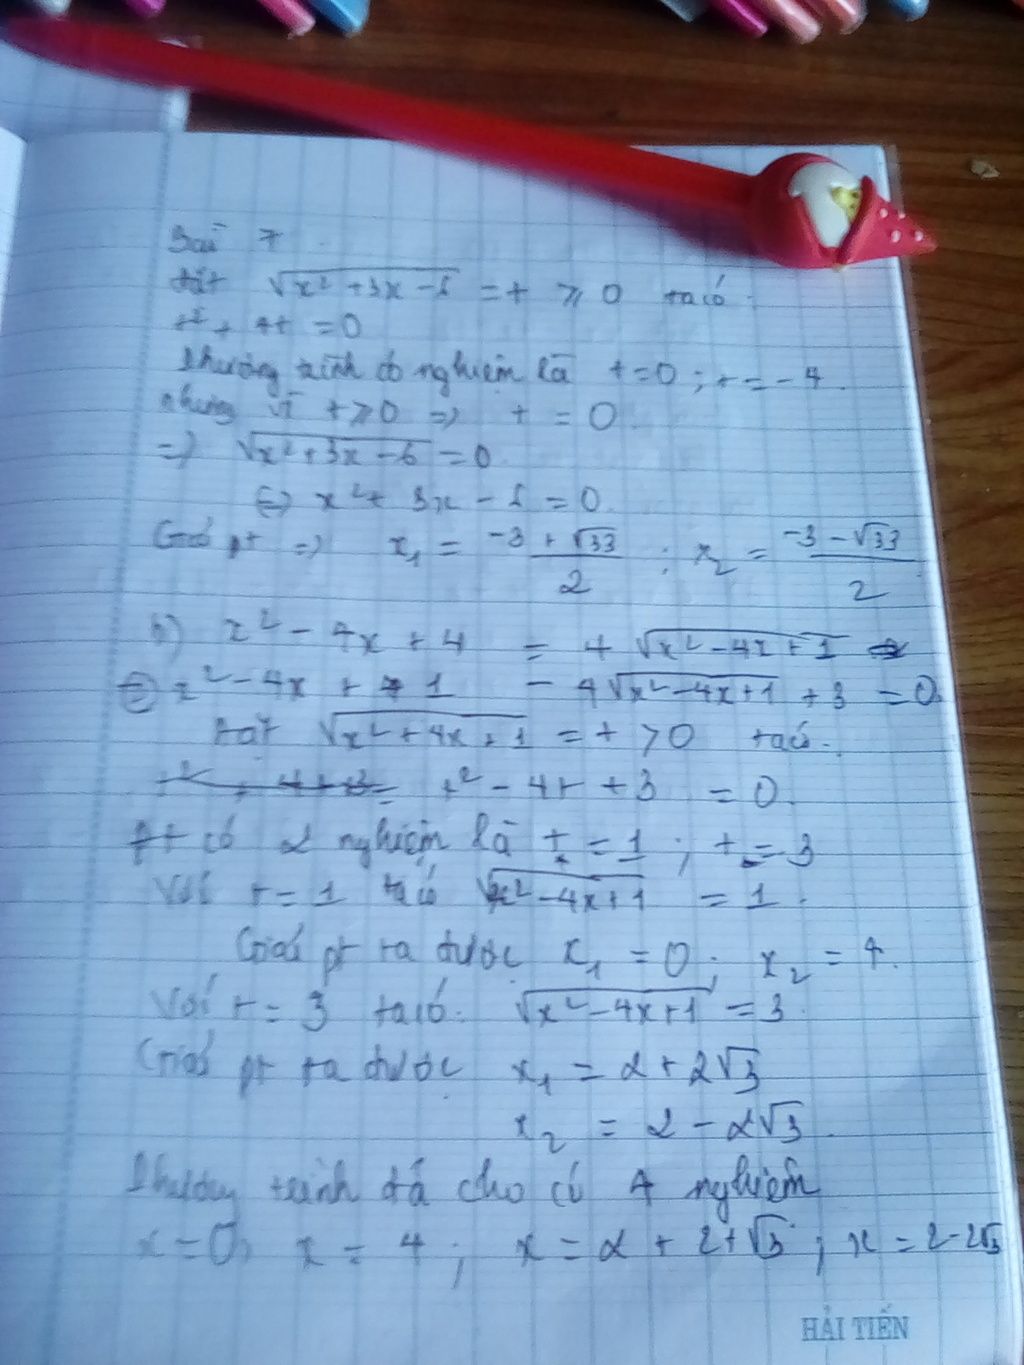 Bài 7
đặt √(x² + 3x - 6) = t ≥ 0 ta có
t² + 4t = 0
Phương trình có nghiệm là t = 0 ; t = -4.
nhưng vì t ≥ 0 => t = 0.
=> √(x² + 3x - 6) = 0
<=> x² + 3x - 6 = 0.
Giải pt => x₁ = (-3 + √33)/2 ; x₂ = (-3 - √33)/2
b) x² - 4x + 4 = 4 √(x² - 4x + 1)
<=> x² - 4x + 1 - 4√(x² - 4x + 1) + 3 = 0.
đặt √(x² + 4x + 1) = t > 0 ta có.
t² - 4t + 3 = 0.
Pt có 2 nghiệm là t = 1 ; t = 3
Với t = 1 ta có √(x² - 4x + 1) = 1.
Giải pt ra được x₁ = 0 ; x₂ = 4.
Với t = 3 ta có. √(x² - 4x + 1) = 3.
Giải pt ra được x₁ = 2 + 2√3
x₂ = 2 - 2√3.
Phương trình đã cho có 4 nghiệm
x = 0, x = 4 ; x = 2 + 2 + √3 ; x = 2 - 2√3
HẢI TIẾN